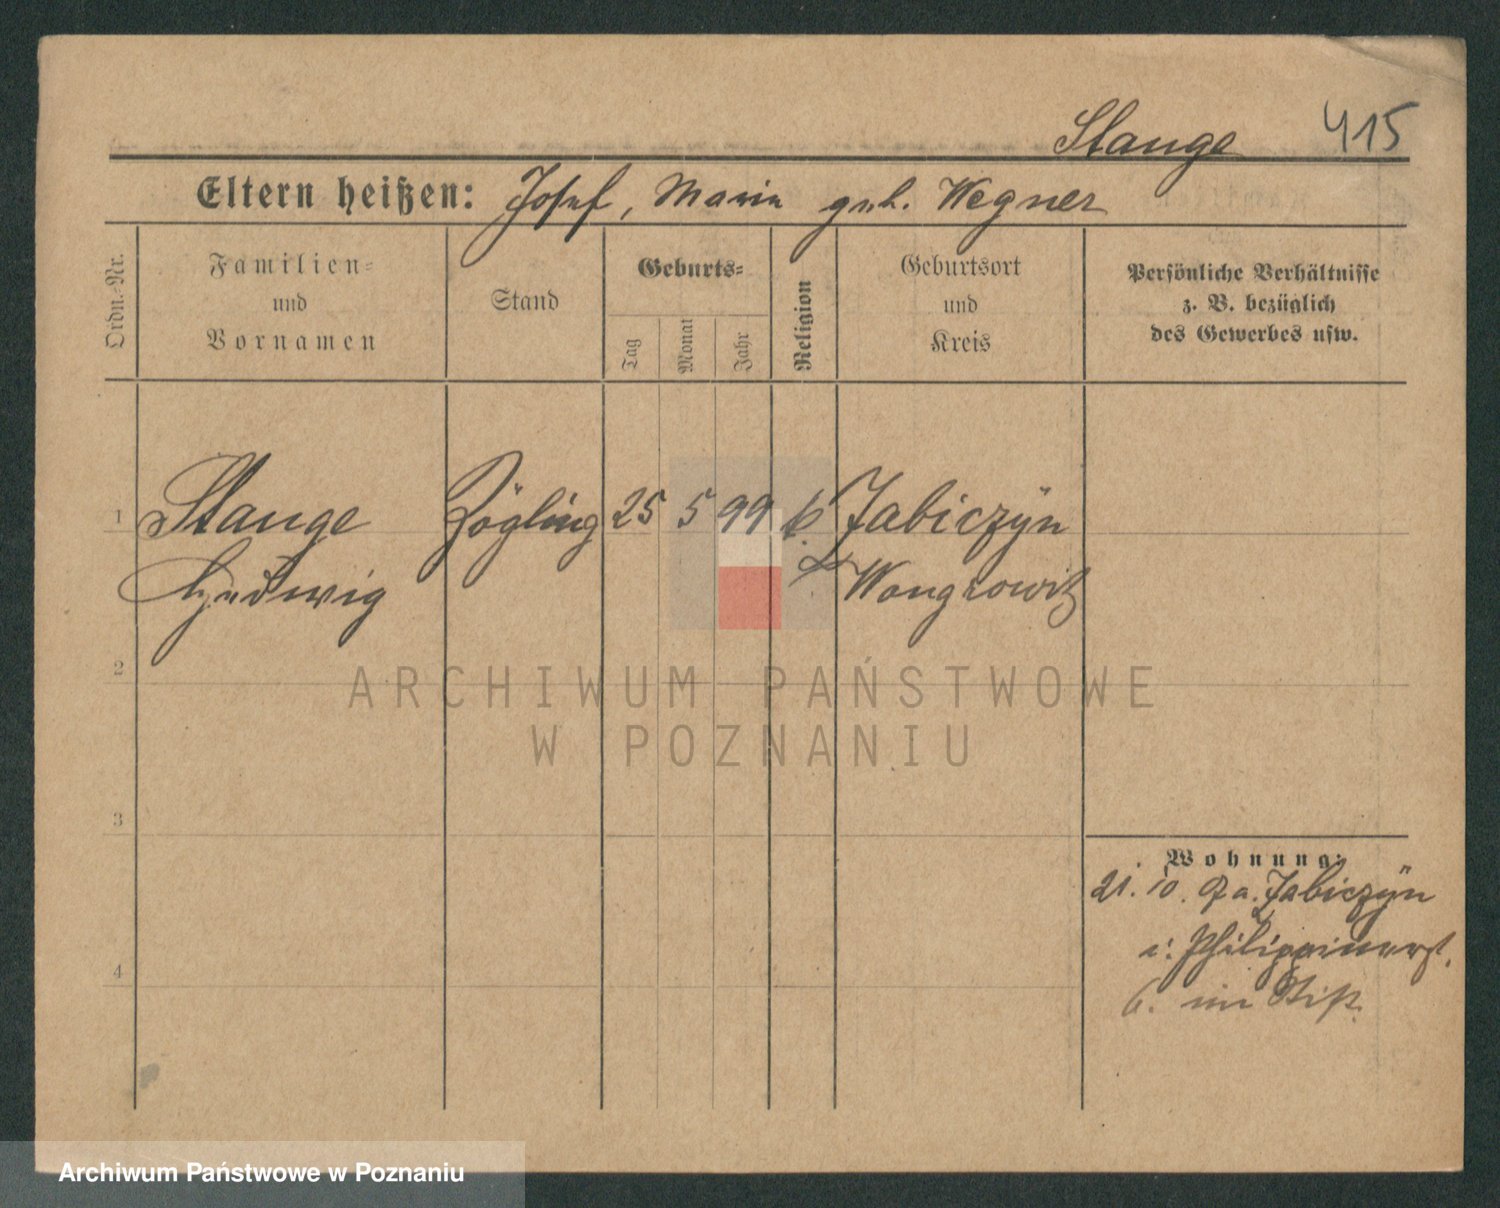 Stange 415
Eltern heißen: Josef, Marie geb. Wegner
Ordn.-Nr.
Familien-
und
Vornamen
Stand
Geburts-
Tag
Monat
Jahr
Religion
Geburtsort
und
Kreis
Persönliche Verhältnisse
z. B. bezüglich
des Gewerbes usw.
1 Stange Zögling 25 5 99 k. Jabiczyn
Hedwig Wongrowitz
2
ARCHIWUM PAŃSTWOWE
W POZNANIU
3
Wohnung:
21. 10. a. Jabiczyn
i. Philippinerst.
4
6. im Stift.
Archiwum Państwowe w Poznaniu